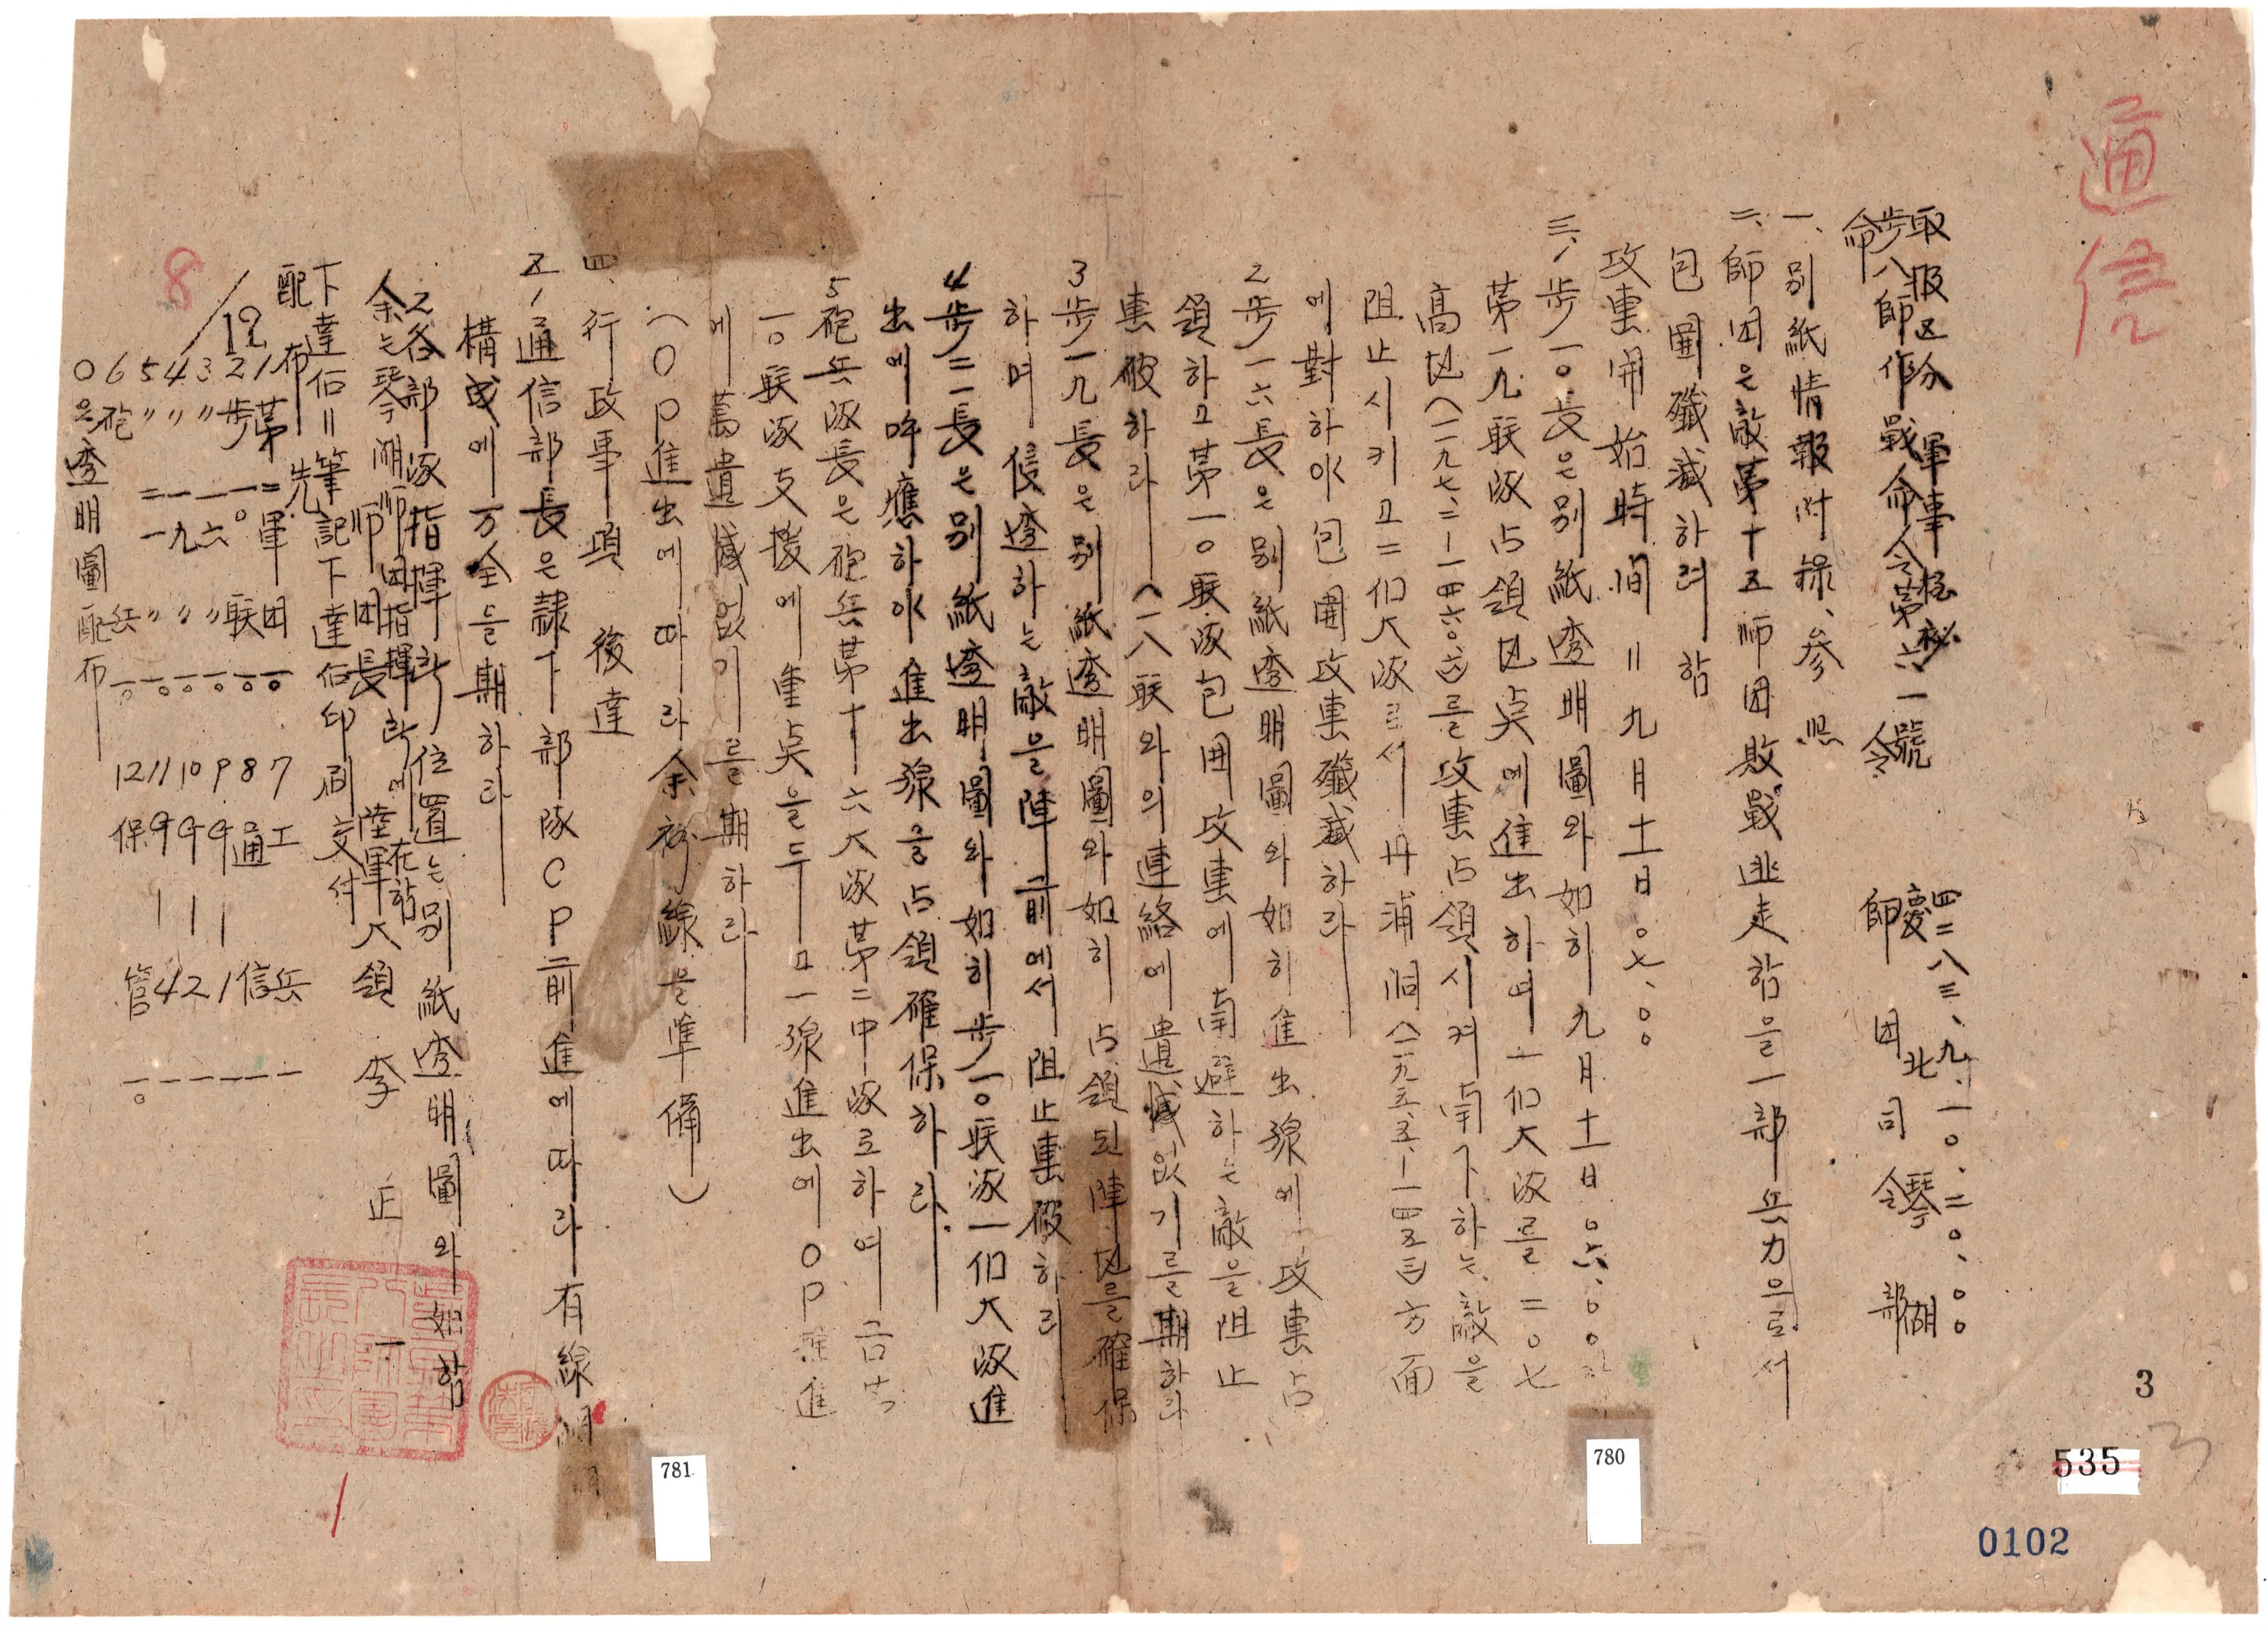 通信
取扱区分 軍事極秘
步八師作戰命令第六一號
命 令
四二八三、九、一〇、二〇、〇〇
慶北 琴湖
師団司令部
一、別紙情報附錄、参照
二、師団은敵第十五師団敗戰逃走함을一部兵力으로서
包圍殲滅하려함
攻擊開始時間＝九月十一日〇七、〇〇
三、1步一〇長은別紙透明圖와如히九月十一日〇六、〇〇
第一九联隊占領地点에進出하며一個大隊를二〇七
高地(一一九七、二-一四六〇、六)를攻擊占領시켜南下하는敵을
阻止시키고二個大隊로서丹浦洞(一一九五、五、-一四五三)方面
에對하야包圍攻擊殲滅하라
2步一六長은別紙透明圖와如히進出線에攻擊占
領하고第一〇联隊包囲攻擊에南避하는敵을阻止
擊破하라(一八联와의連絡에遺憾없기를期하라
3步一九長은別紙透明圖와如히占領된陣地를確保
하며侵透하는敵을陣前에서阻止擊破하라
4步二一長은別紙透明圖와如히步一〇联隊一個大隊進
出에呼應하야進出線을占領確保하라.
5砲兵隊長은砲兵第十六大隊第二中隊로하여금步
一〇联隊支援에重点을두고一線進出에OP推進
에萬遺憾없기를期하라
(OP進出에따라余移線을準備)
四、行政事項 後達
五、1通信部長은隷下部隊CP前進에따라有線網
構成에万全을期하라
2各部隊指揮所位置는別紙透明圖와如함
余는琴湖師団指揮所에在함
師団長 陸軍大領 李 正 一
下達法＝筆記下達后印刷交付
配布先
1 第二軍団 一〇
2 步一〇联 一〇
3 〃一六〃 一〇
4 〃一九〃 一〇
5 〃二一〃 一〇
6 砲兵 一〇
7 工兵 一
8 通信 一
9 G 1 一
10 G 2 一
11 G 4 一
12 保管 一〇
○은透明圖配布
8/12
1
781
780
3
3
535
0102